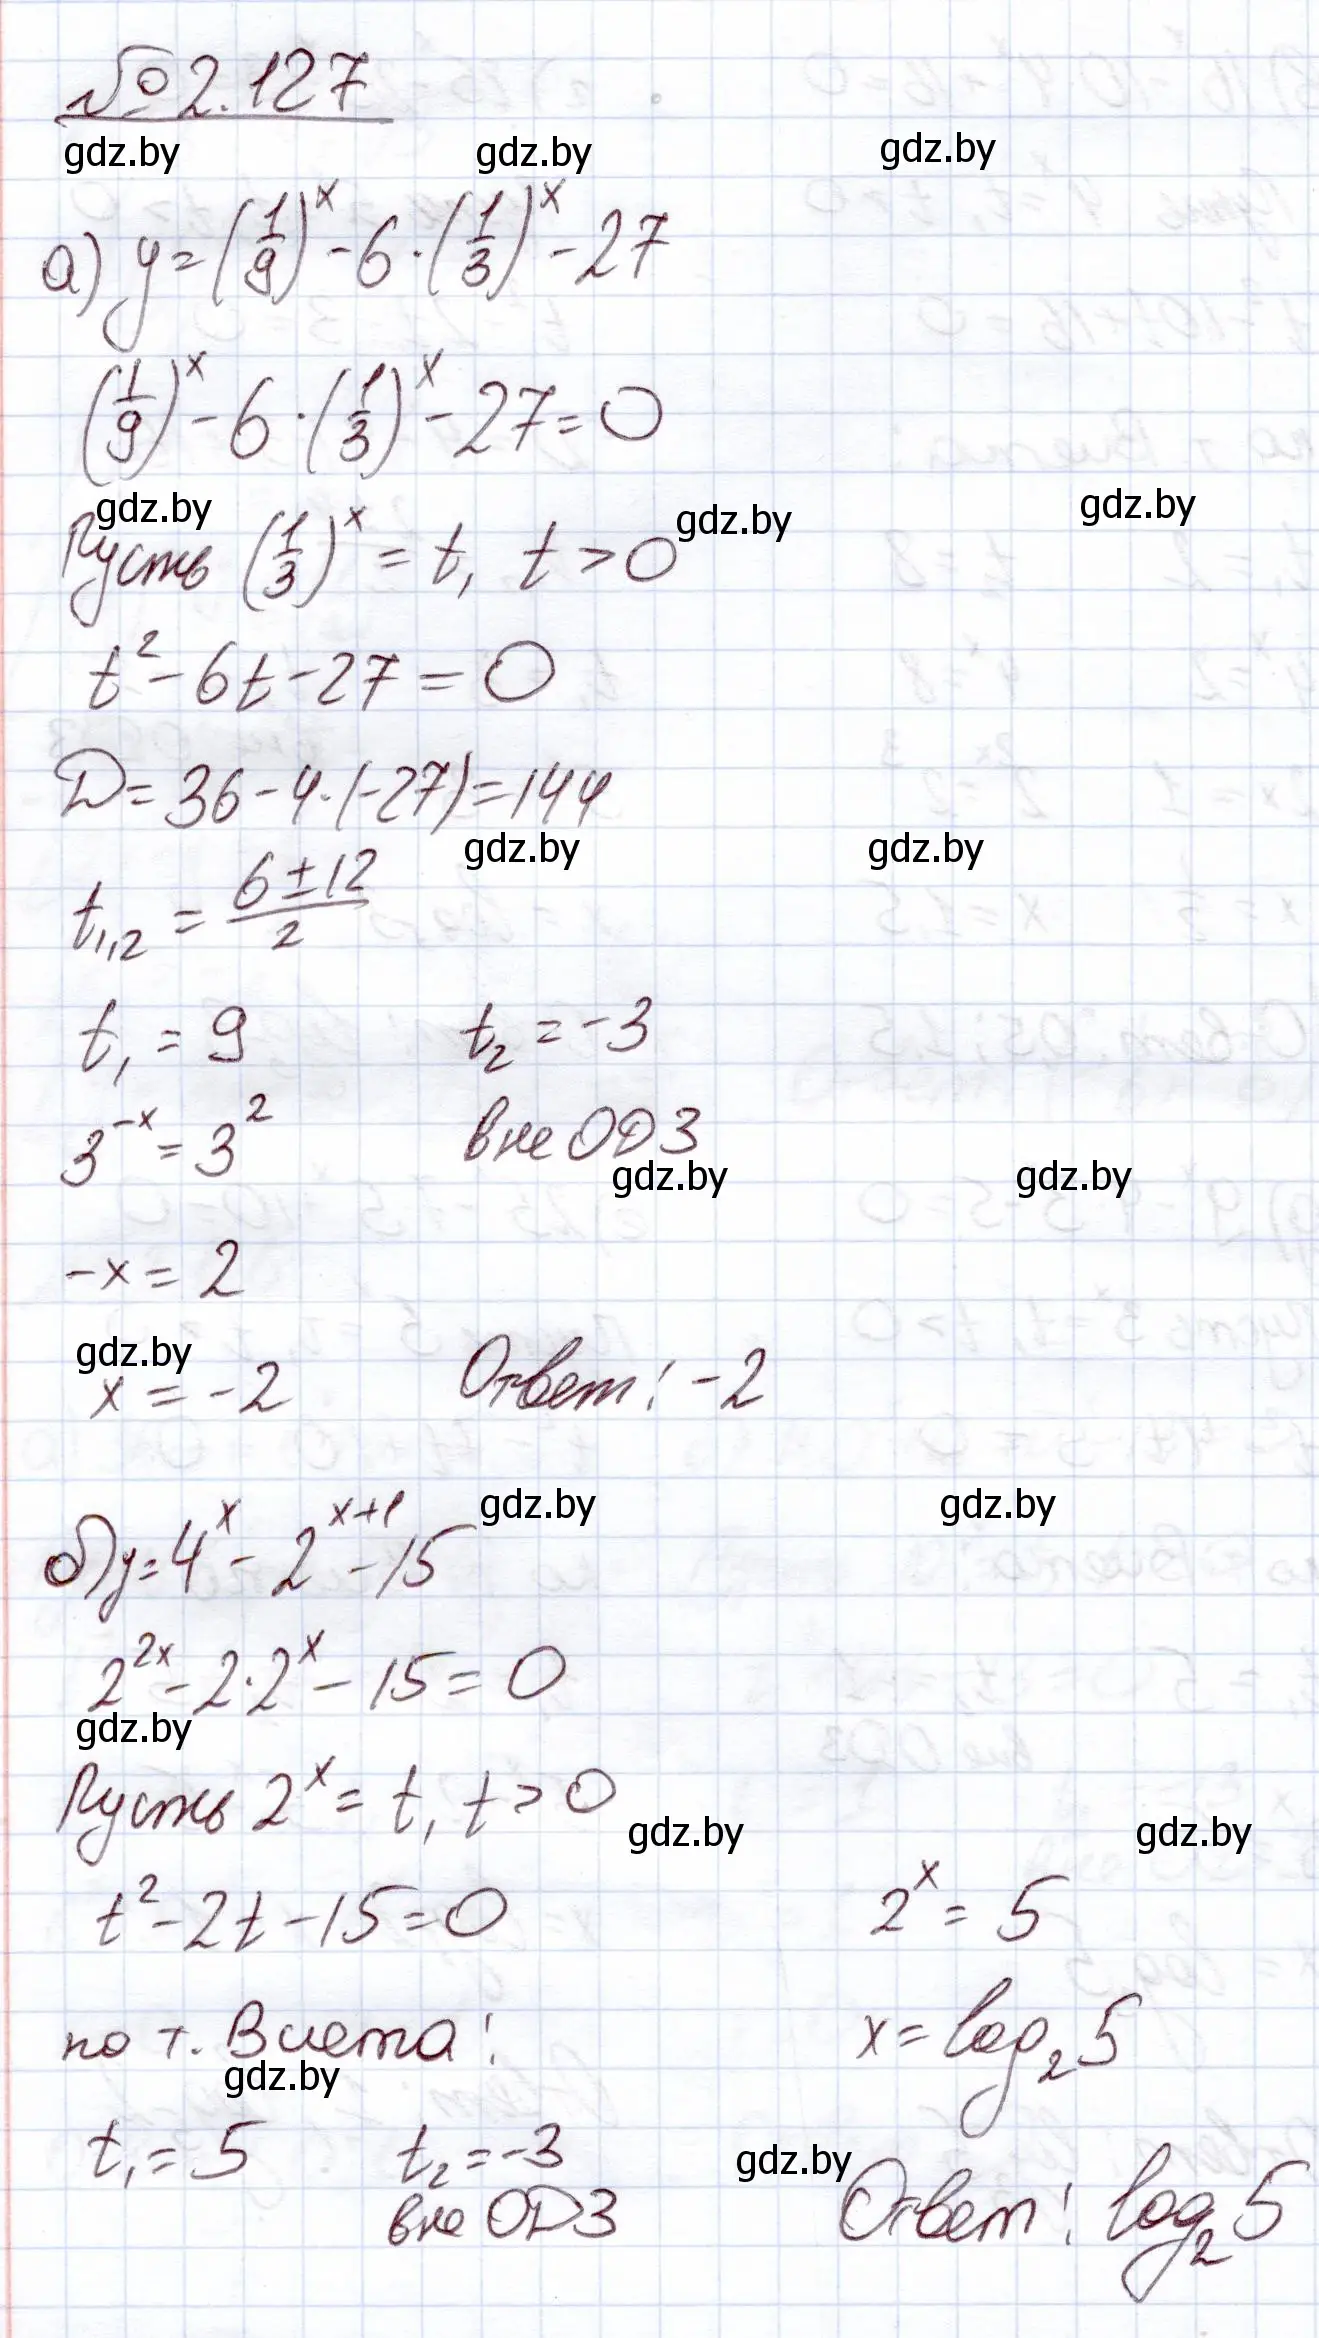 №2.127
gdz.by gdz.by gdz.by
а) y=(1/9)^x-6·(1/3)^x-27
(1/9)^x-6·(1/3)^x-27=0
gdz.by gdz.by gdz.by
Пусть (1/3)^x=t, t>0
t²-6t-27=0
D=36-4·(-27)=144
gdz.by gdz.by
t₁,₂=(6±12)/2
t₁=9 t₂=-3
3^-x=3² вне ОДЗ
gdz.by gdz.by
-x=2
gdz.by
x=-2 Ответ: -2
gdz.by gdz.by
б) y=4^x-2^x+1-15
2^2x-2·2^x-15=0
gdz.by
Пусть 2^x=t, t>0
gdz.by gdz.by
t²-2t-15=0 2^x=5
по т. Виета: x=log₂5
gdz.by
t₁=5 t₂=-3 gdz.by
вне ОДЗ Ответ: log₂5